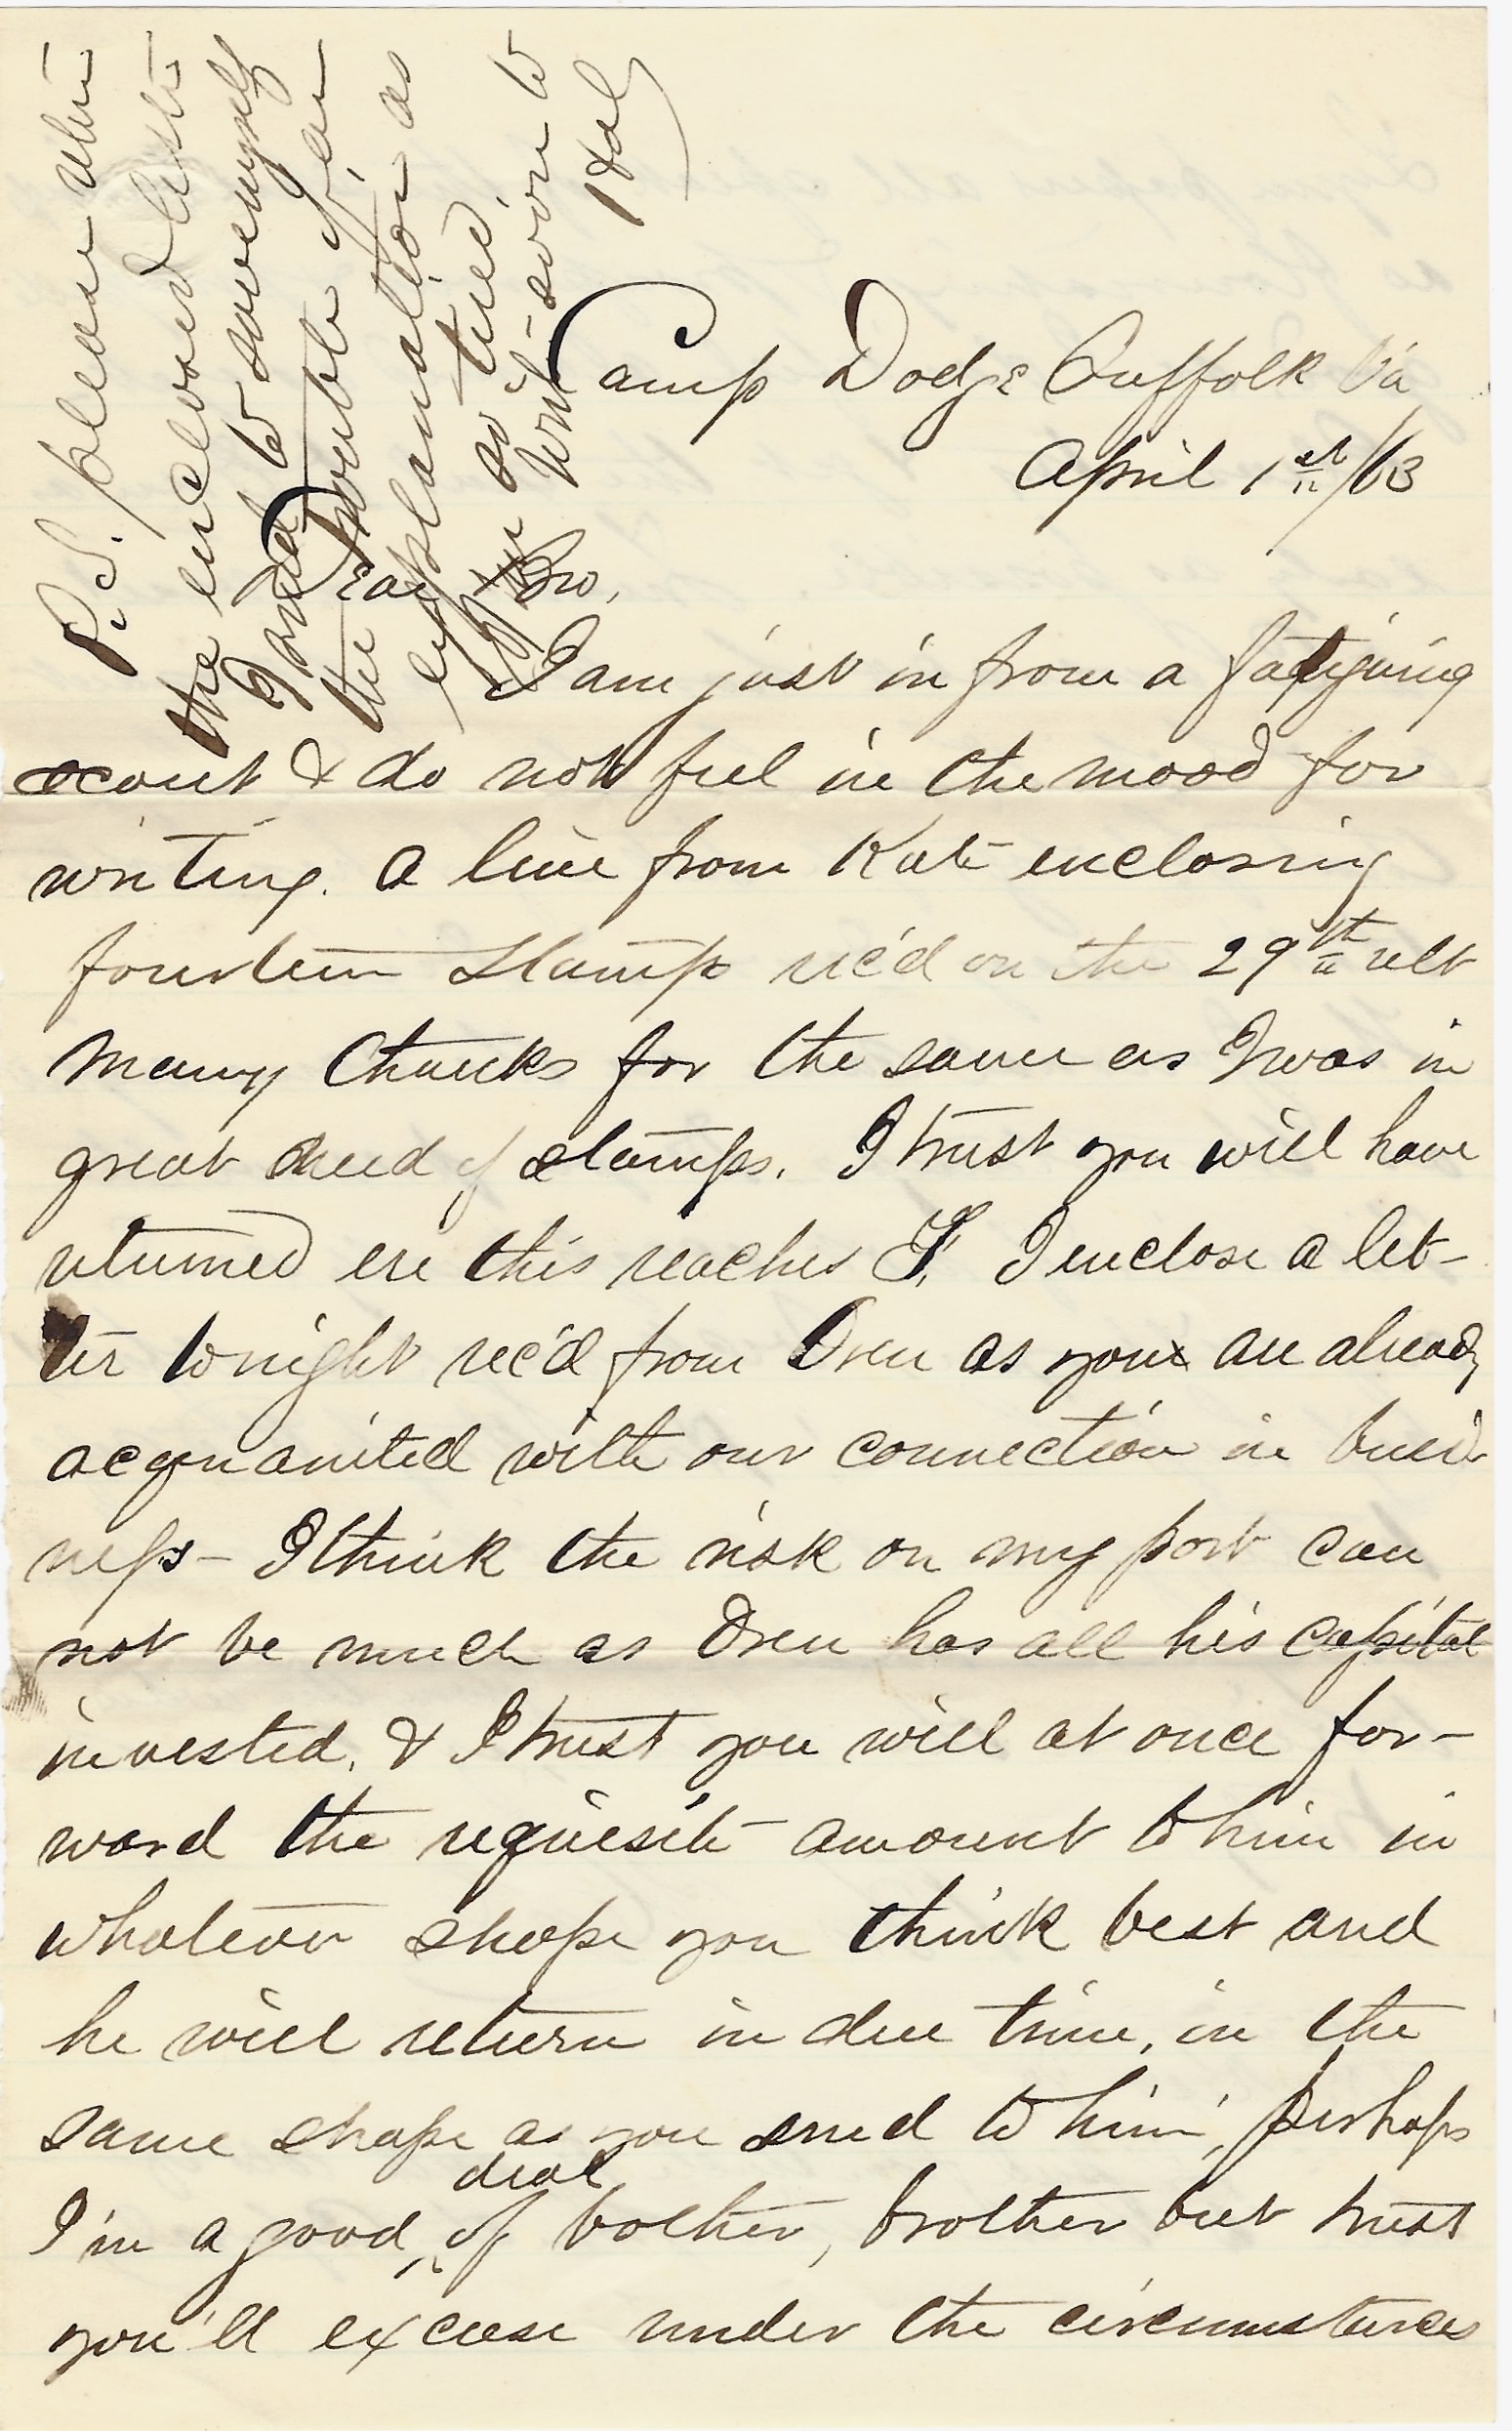 Camp Dodge Suffolk Va
April 1st/63
Dear Bro,
I am just in from a fatiguing
scout & do not feel in the mood for
writing. A line from Kate enclosing
fourteen stamps rec'd on the 29th ult
Many thanks for the same as I was in
great need of stamps. I trust you will have
returned ere this reaches F. I enclose a let-
ter tonight rec'd from Oren as you are already
acquainted with our connection in busi-
ness - I think the risk on my part can
not be much as Oren has all his capital
invested, & I trust you will at once for-
ward the requisite amount to him in
whatever shape you think best and
he will return in due time, in the
same shape as you send to him, perhaps
I'm a good deal of bother, brother but trust
you'll excuse under the circumstances
P.S. please return
the enclosed letter
I send to save myself
the trouble of an
explanation as
I am so tired
will soon to
Hal